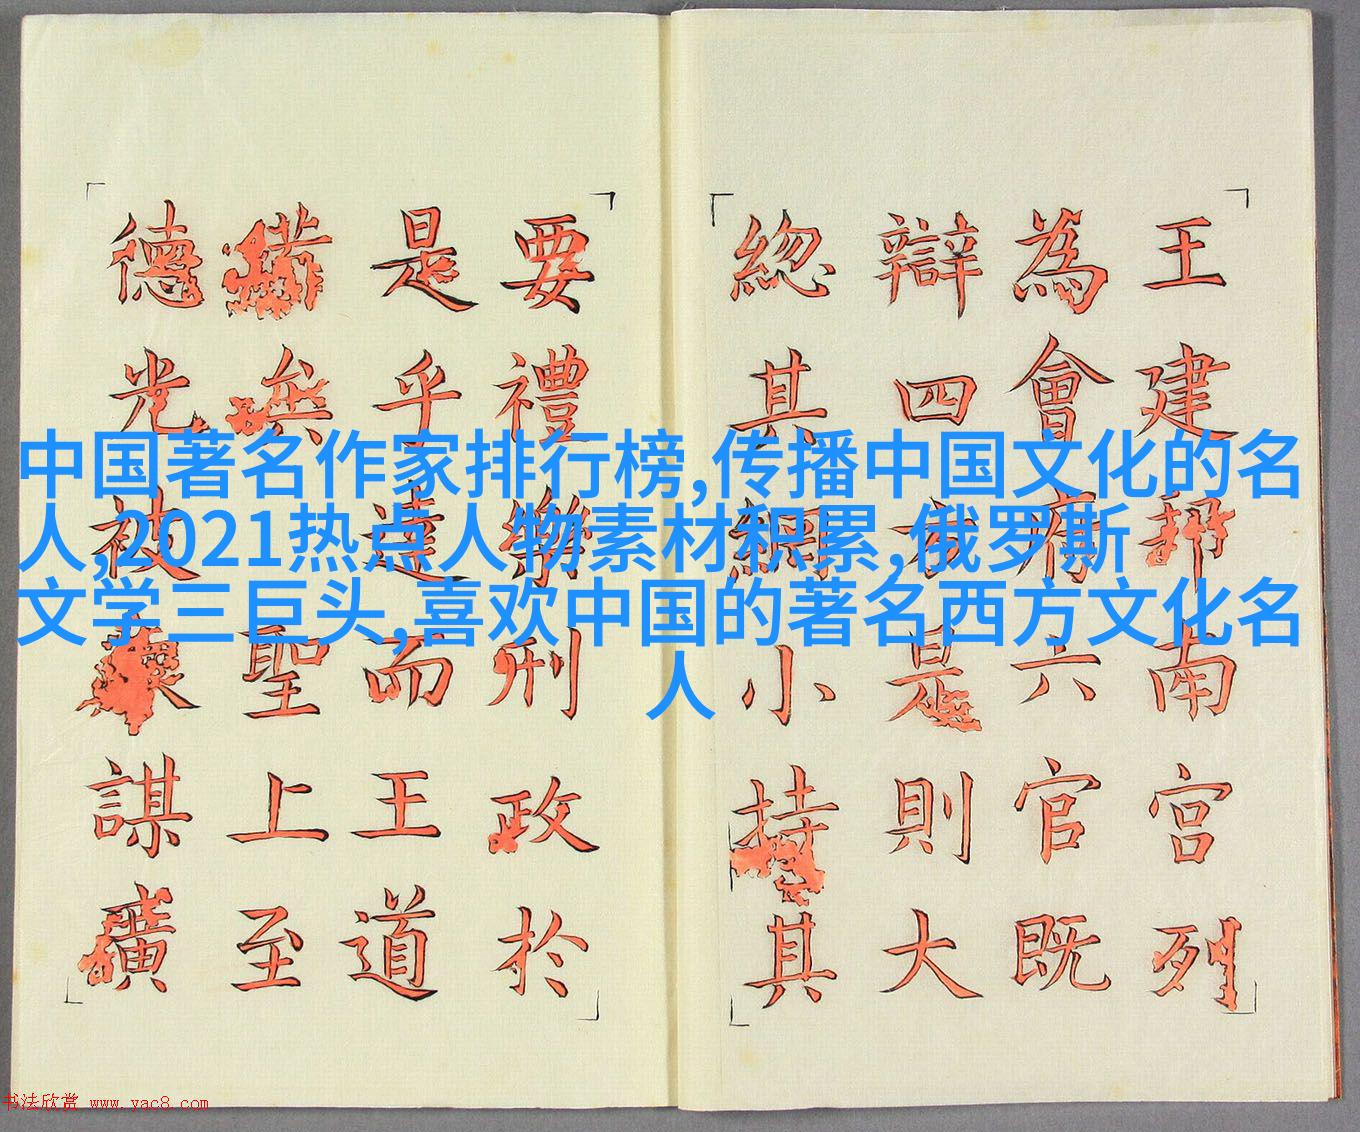 中国著名作家排行榜,传播中国文化的名
人,2021热点人物素材积累,俄罗斯
文学三巨头,喜欢中国的著名西方文化名
人
王建邦南宮列
為會府六官既
辯四方是則大
緫其細小持其
要禮樂刑政於
是乎達而王道
備矣聖上至
德光被謀廣
书法欣赏 www.yac8.com